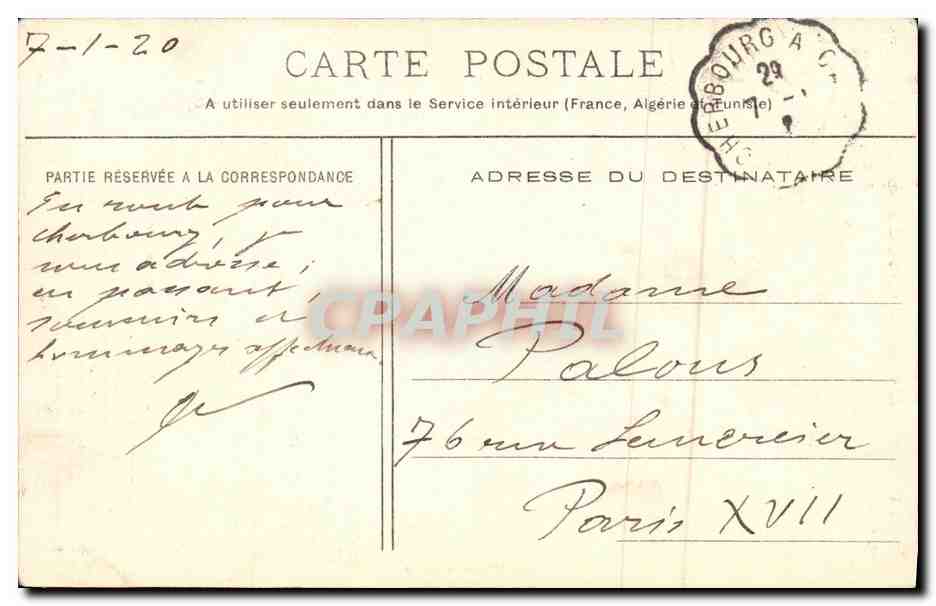 7-1-20
CARTE POSTALE
A utiliser seulement dans le Service intérieur (France, Algérie et Tunisie)
CHERBOURG A C
29
7 -1
PARTIE RÉSERVÉE A LA CORRESPONDANCE
En route pour
cherbourg, je
vous adresse,
en passant,
souvenirs et
hommages affectueux
ADRESSE DU DESTINATAIRE
Madame
Palous
76 rue Lemercier
Paris XVII
CPAPHIL